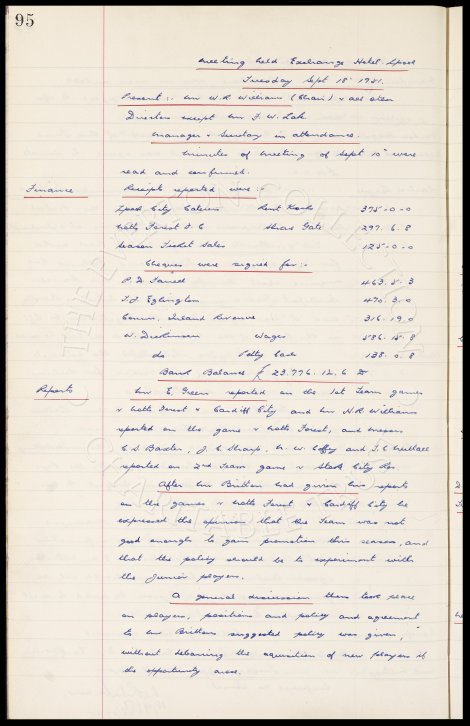 95
Meeting held Exchange Hotel L'pool
Tuesday Sept 18th 1951.
Present:- Mr W.R. Williams (Chair) & all other
Directors except Mr
Manager & Secretary in attendance.
Minutes of meeting of Sept 10th were
read and confirmed.
Finance Receipts reported were:-
L'pool City Caterers Rent Kiosks 375-0-0
Notts Forest F.C Share Gate 297. 6. 8
Season Ticket Sales 125-0-0
Cheques were signed for:-
P.D. Farrell 463. 5. 3
T.J. Eglington 470. 3. 0
Comm. Inland Revenue 316. 19. 0
W. Dickinson Wages 586. 15. 8
do Petty Cash 138. 0. 8
Bank Balance £ 23.776. 12. 6
Reports Mr E. Green reported on the 1st Team games
v Notts Forest & Cardiff City and Mr H.R. Williams
reported on the game v Notts Forest, and Messrs
C.S. Baxter, J.C. Sharp, N.W. Coffey and
reported on 2nd Team game v Stoke City Res.
After Mr Britton had given his reports
on the games v Notts Forest & Cardiff City he
expressed the opinion that the Team was not
good enough to gain promotion this season, and
that the policy should be to experiment with
the Junior players.
A general discussion then took place
on players, positions and policy and agreement
to Mr Brittons suggested policy was given,
without debarring the acquisition of new players if
the opportunity arose.